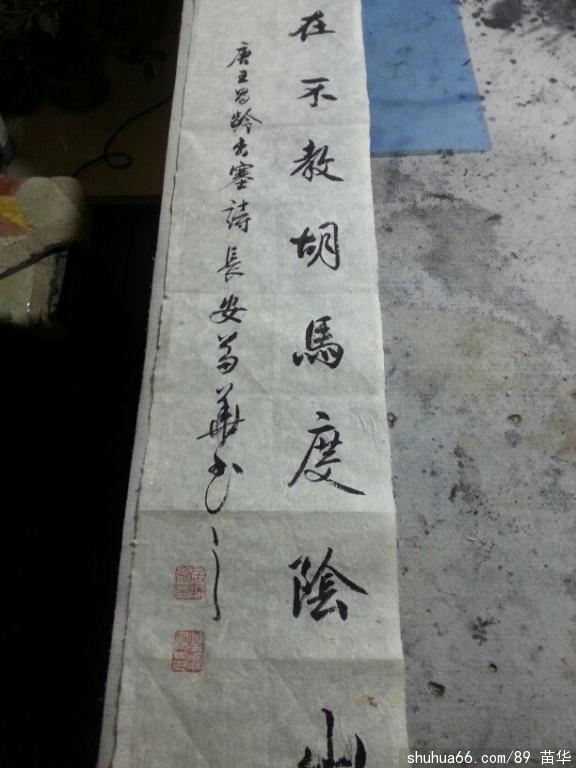 在不教胡馬度陰山
唐王昌齡出塞詩長安苗華书之
shuhua66.com/89 苗华